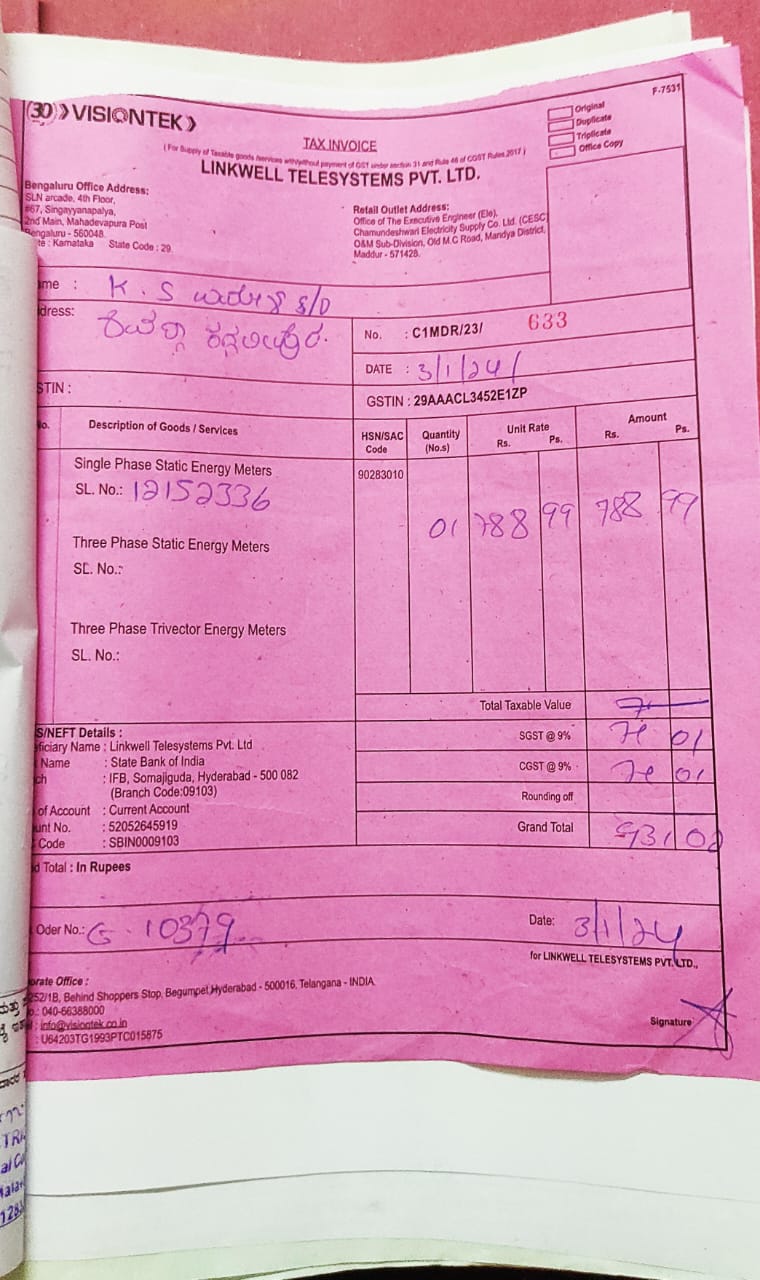 30 VISIONTEK
F-7531
Original
Duplicate
Triplicate
Office Copy
TAX INVOICE
( For Supply of Taxable goods /services with/without payment of GST under section 31 and Rule 46 of CGST Rules 2017 )
LINKWELL TELESYSTEMS PVT. LTD.
Bengaluru Office Address:
SLN arcade, 4th Floor,
#67, Singayyanapalya,
2nd Main, Mahadevapura Post
Bengaluru - 560048.
: Karnataka State Code : 29
Retail Outlet Address:
Office of The Executive Engineer (Ele),
Chamundeshwari Electricity Supply Co. Ltd. (CESC)
O&M Sub-Division, Old M.C Road, Mandya District,
Maddur - 571428.
me : K. S S/O
dress:
No. : C1MDR/23/ 633
DATE : 3/1/24/
STIN :
GSTIN : 29AAACL3452E1ZP
o. Description of Goods / Services HSN/SAC Code Quantity (No.s) Unit Rate Rs. Ps. Amount Rs. Ps.
Single Phase Static Energy Meters 90283010
SL. No.: 12152336 01 788 99 788 99
Three Phase Static Energy Meters
SL. No.:
Three Phase Trivector Energy Meters
SL. No.:
Total Taxable Value
S/NEFT Details :
SGST @ 9% 71 01
ficiary Name : Linkwell Telesystems Pvt. Ltd
Name : State Bank of India
CGST @ 9% 71 01
ch : IFB, Somajiguda, Hyderabad - 500 082
(Branch Code:09103)
Rounding off
of Account : Current Account
unt No. : 52052645919
Grand Total 931 02
Code : SBIN0009103
d Total : In Rupees
Oder No.: G. 10379
Date: 3/1/24
for LINKWELL TELESYSTEMS PVT. LTD.,
orate Office :
252/1B, Behind Shoppers Stop, Begumpet,Hyderabad - 500016, Telangana - INDIA.
o.: 040-66388000
: info@visiontek.co.in
: U64203TG1993PTC015875
Signature